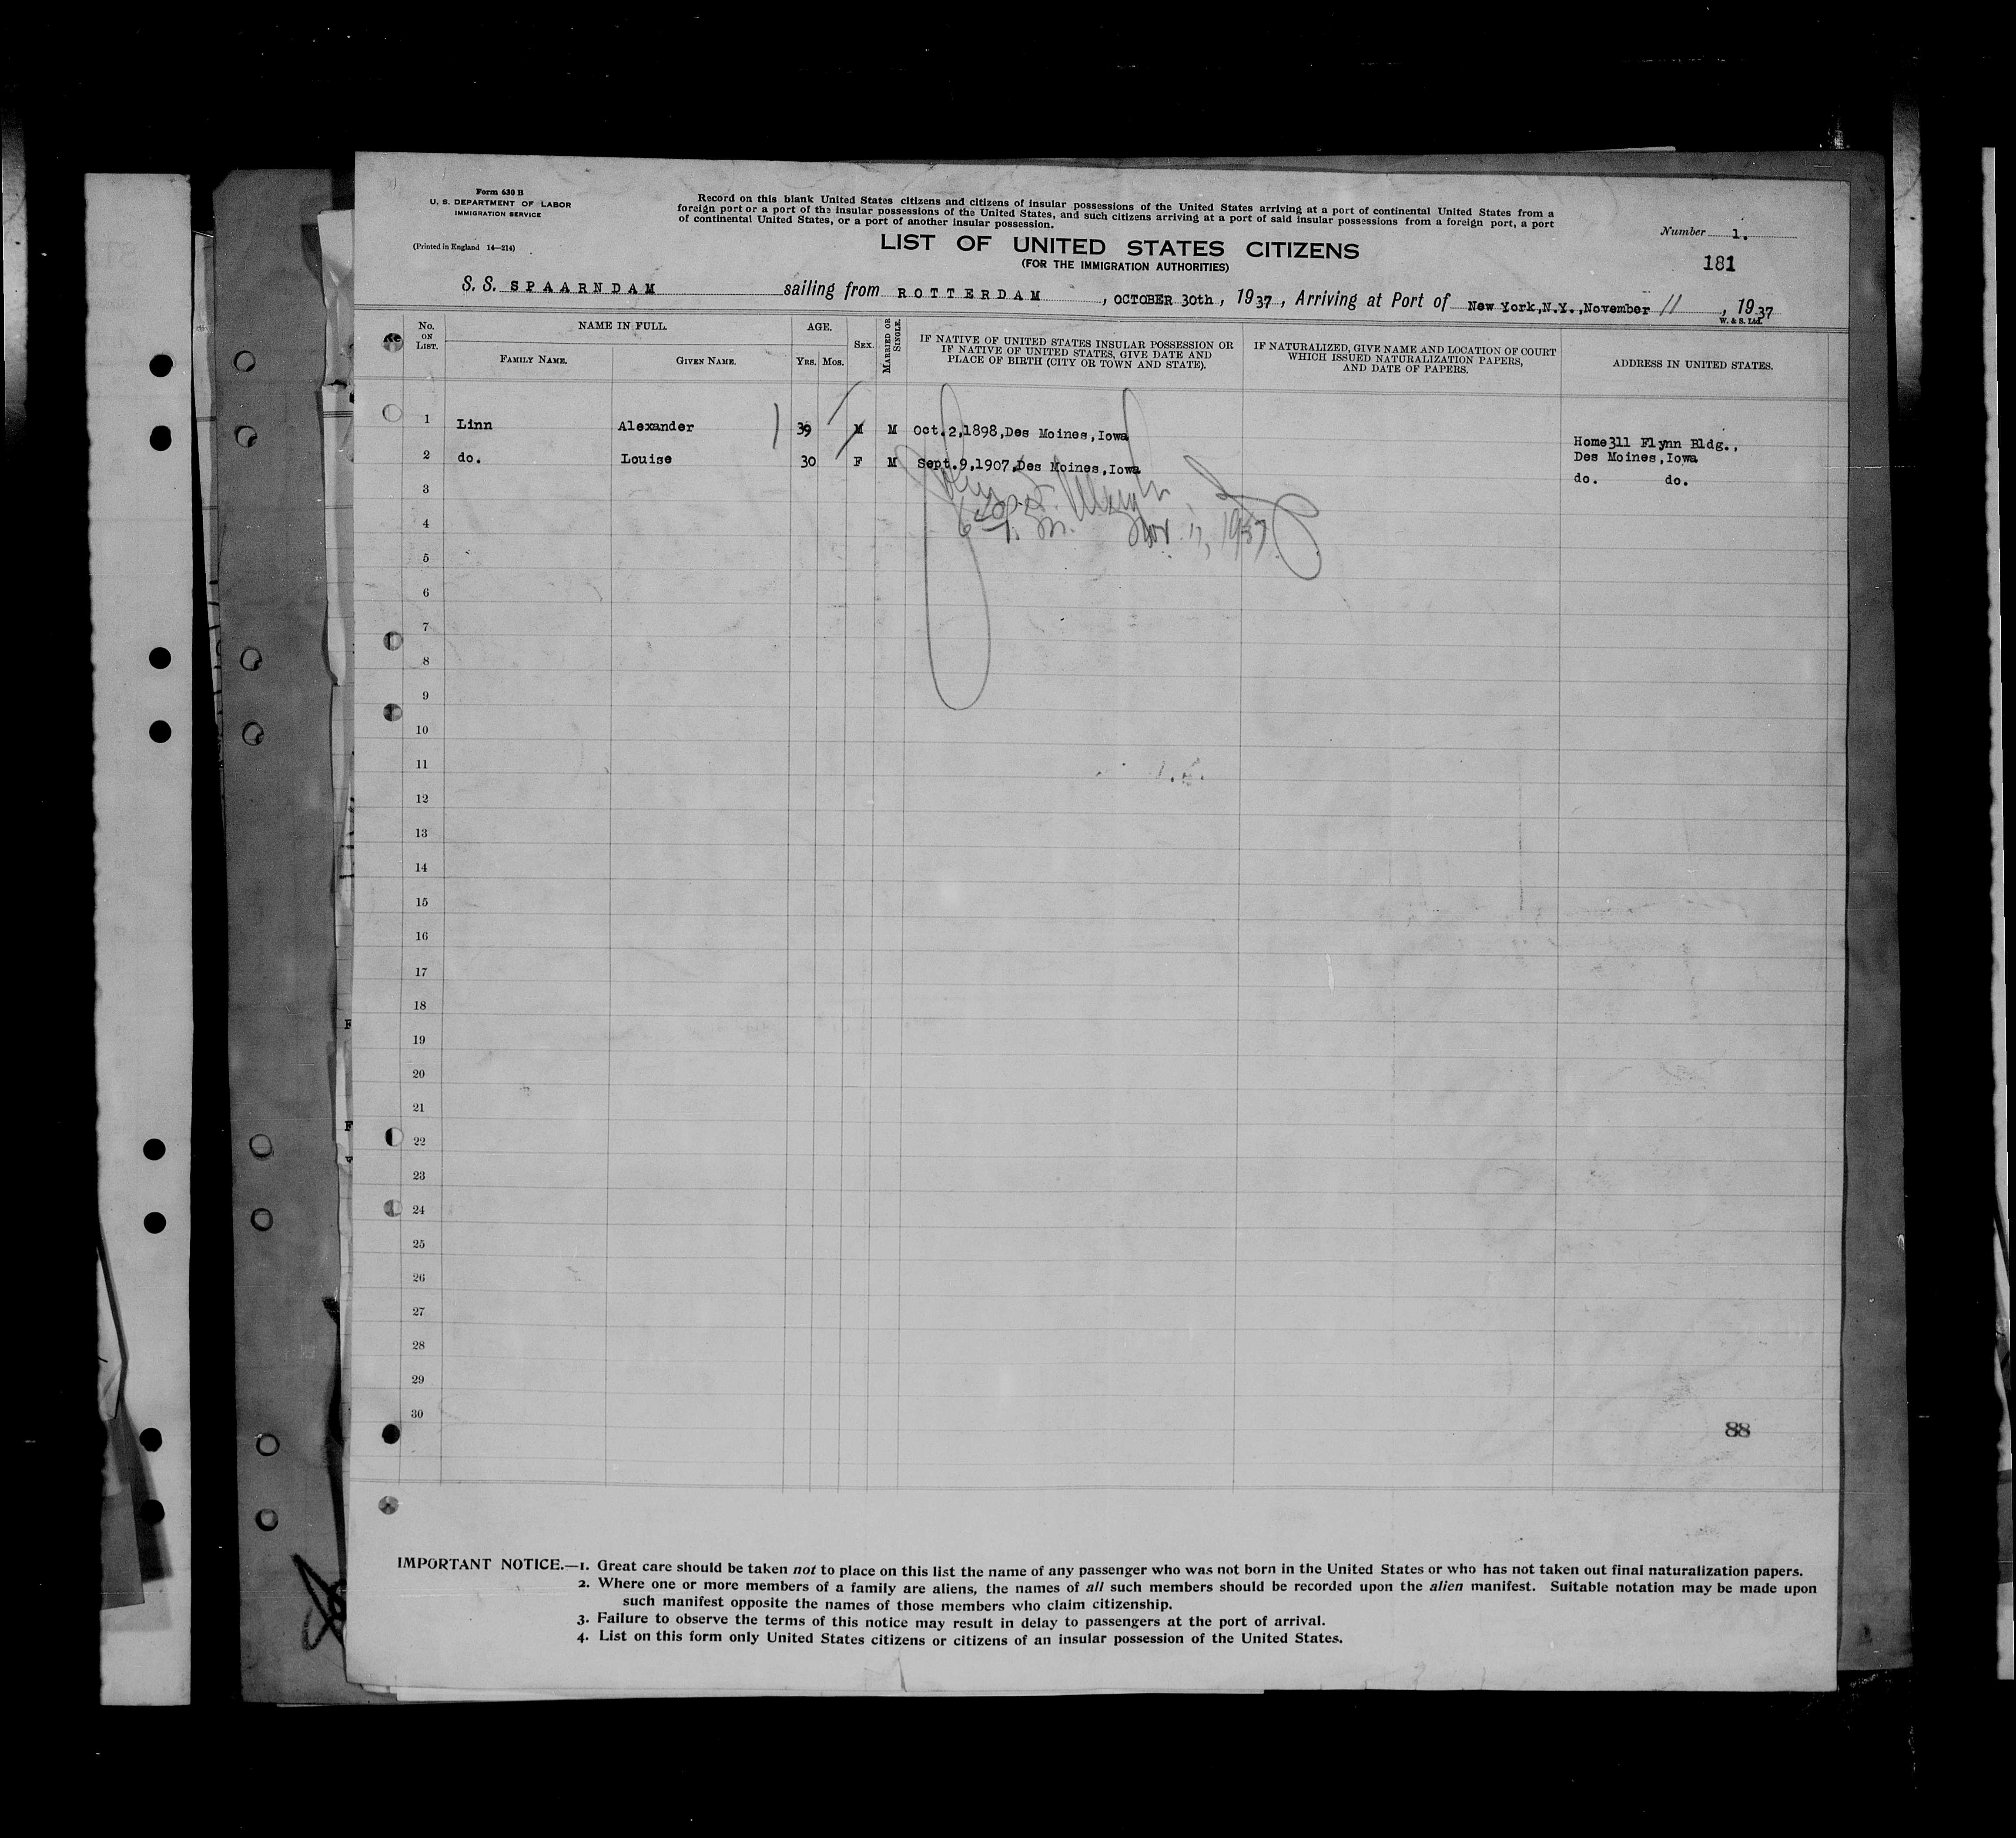 Form 630 B
U. S. DEPARTMENT OF LABOR
IMMIGRATION SERVICE
(Printed in England 14—214)
Record on this blank United States citizens and citizens of insular possessions of the United States arriving at a port of continental United States from a
foreign port or a port of the insular possessions of the United States, and such citizens arriving at a port of said insular possessions from a foreign port, a port
of continental United States, or a port of another insular possession.
LIST OF UNITED STATES CITIZENS
(FOR THE IMMIGRATION AUTHORITIES)
Number 1.
181
S. S. SPAARNDAM sailing from ROTTERDAM, OCTOBER 30th, 1937, Arriving at Port of New York,N.Y.,November 11, 1937
W. & S. Ltd.
No. ON LIST.
NAME IN FULL.
FAMILY NAME. GIVEN NAME.
AGE.
YRS. MOS.
SEX.
MARRIED OR SINGLE.
IF NATIVE OF UNITED STATES INSULAR POSSESSION OR
IF NATIVE OF UNITED STATES, GIVE DATE AND
PLACE OF BIRTH (CITY OR TOWN AND STATE).
IF NATURALIZED, GIVE NAME AND LOCATION OF COURT
WHICH ISSUED NATURALIZATION PAPERS,
AND DATE OF PAPERS.
ADDRESS IN UNITED STATES.
1 Linn Alexander 39 M M Oct.2,1898,Des Moines,Iowa
Home311 Flynn Bldg.,
Des Moines,Iowa
2 do. Louise 30 F M Sept.9,1907,Des Moines,Iowa
do. do.
Nov. 11, 1937
3
4
5
6
7
8
9
10
11
12
13
14
15
16
17
18
19
20
21
22
23
24
25
26
27
28
29
30
88
IMPORTANT NOTICE.—1. Great care should be taken not to place on this list the name of any passenger who was not born in the United States or who has not taken out final naturalization papers.
2. Where one or more members of a family are aliens, the names of all such members should be recorded upon the alien manifest. Suitable notation may be made upon
such manifest opposite the names of those members who claim citizenship.
3. Failure to observe the terms of this notice may result in delay to passengers at the port of arrival.
4. List on this form only United States citizens or citizens of an insular possession of the United States.